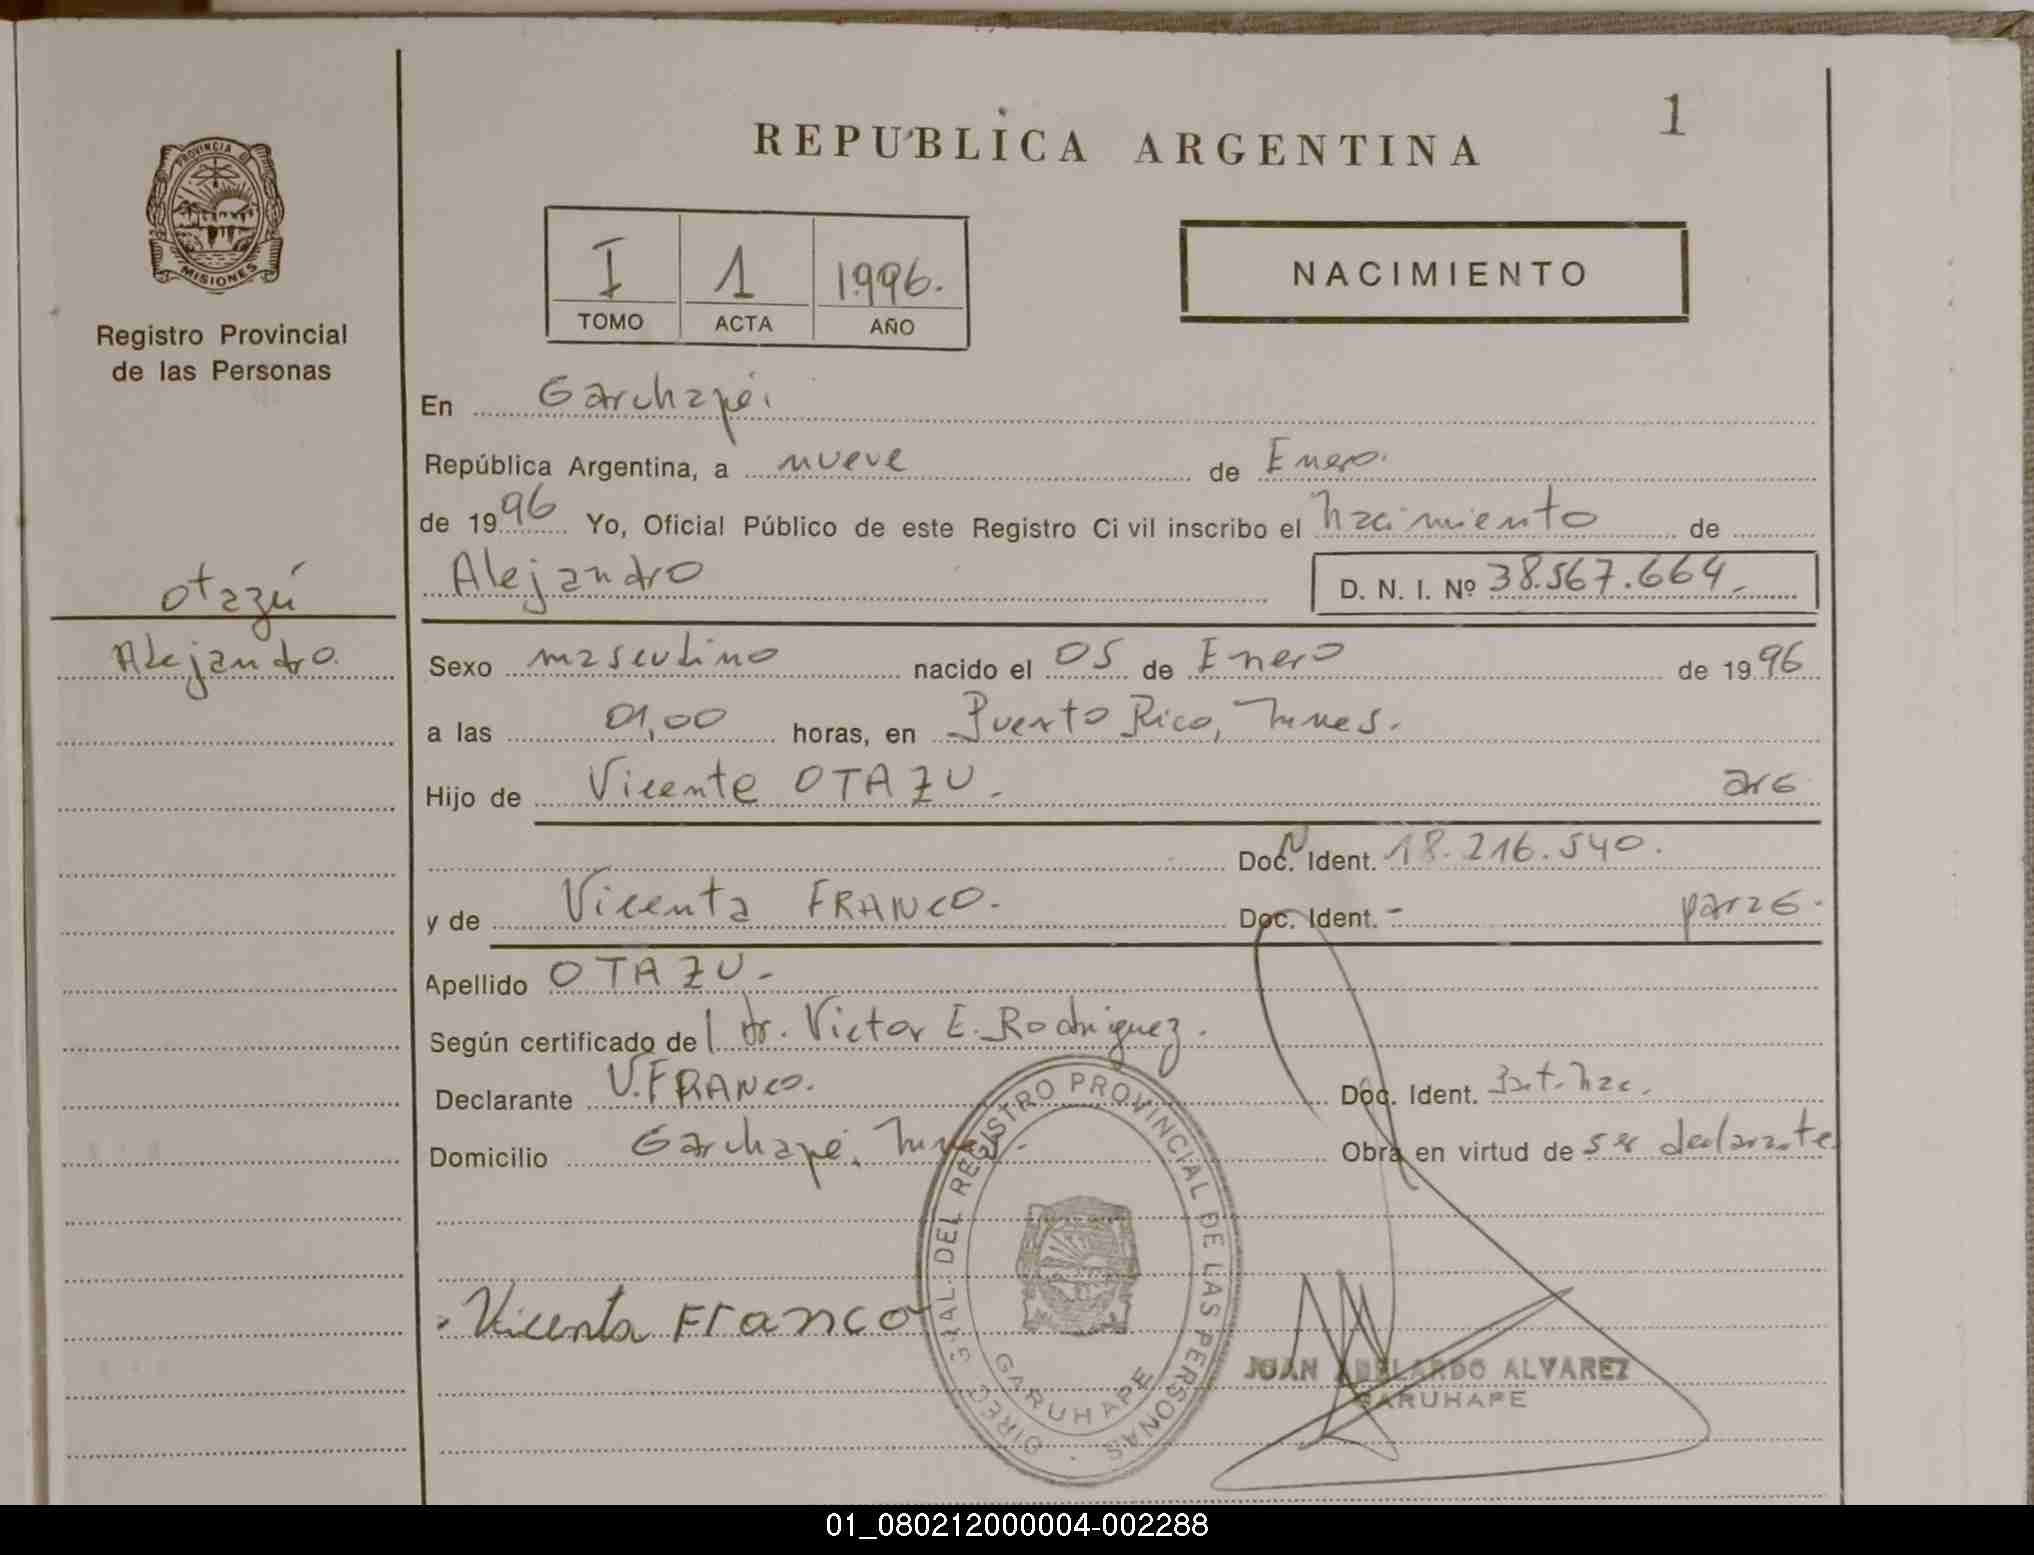 1
REPUBLICA ARGENTINA
PROVINCIA DE
MISIONES
Registro Provincial
de las Personas
I 1 1996.
TOMO ACTA AÑO
NACIMIENTO
En Garuhapé.
República Argentina, a nueve de Enero.
de 1996 Yo, Oficial Público de este Registro Ci vil inscribo el nacimiento de
Alejandro D. N. I. Nº 38.567.664.-
Otazú
Alejandro.
Sexo masculino nacido el 05 de Enero de 1996
a las 01,00 horas, en Puerto Rico, Mnes.
Hijo de Vicente OTAZU.- arg
Doc. Ident. 18.216.540.
y de Vicenta FRANCO.- Doc. Ident. - parag.
Apellido OTAZU.-
Según certificado de dr. Victor E. Rodriguez.
Declarante V. FRANCO. Doc. Ident. Part. Nac.
Domicilio Garuhapé, Mnes.- Obra en virtud de ser declarante
Vicenta Franco
DIREC. GRAL. DEL REGISTRO PROVINCIAL DE LAS PERSONAS
GARUHAPE
JUAN ABELARDO ALVAREZ
GARUHAPE
01_080212000004-002288